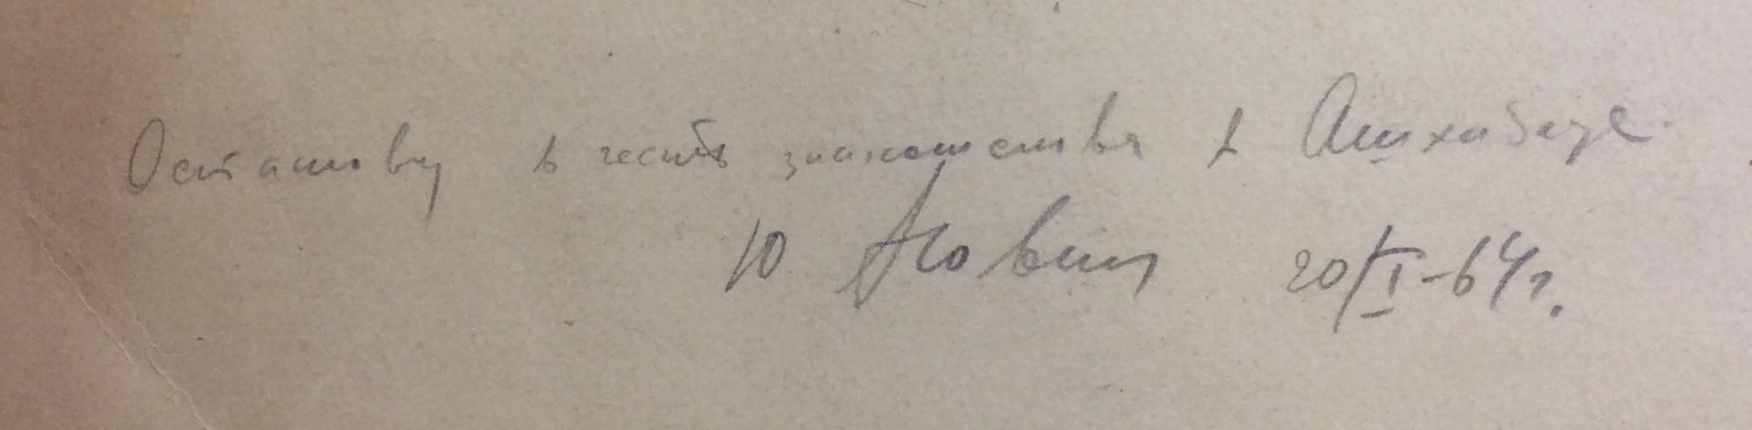 Останову в честь знакомства в Ашхабаде.
Ю 20/I-64г.